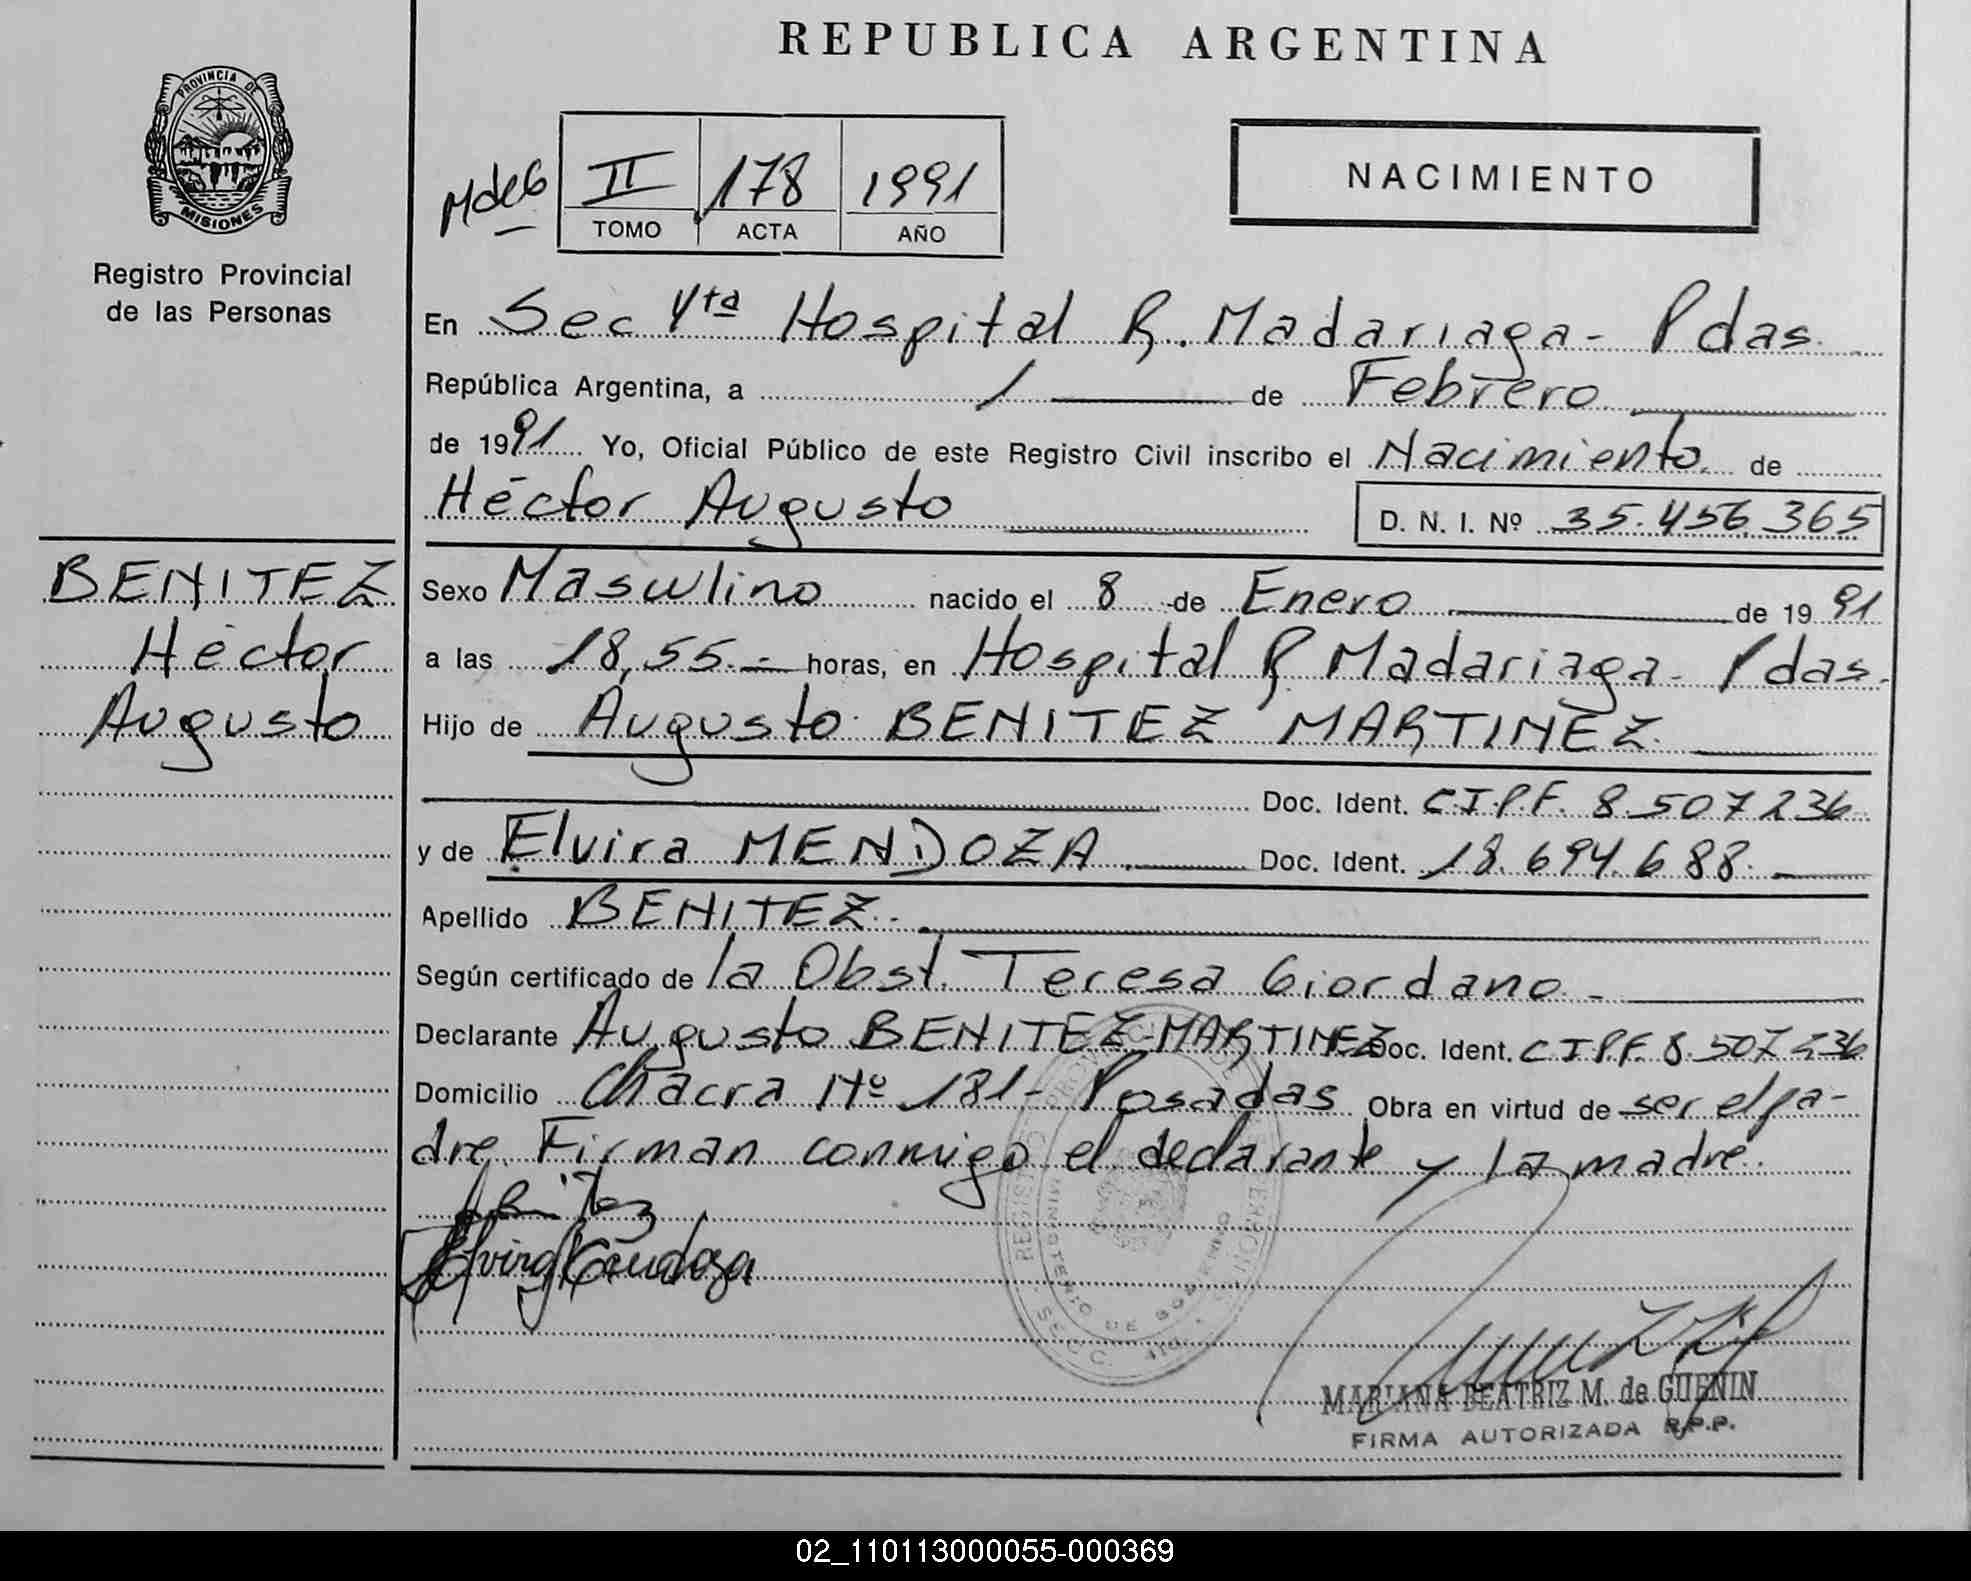 REPUBLICA ARGENTINA
PROVINCIA DE
MISIONES
Registro Provincial
de las Personas
MdeG
II 178 1991
TOMO ACTA AÑO
NACIMIENTO
En Sec 4ta Hospital R. Madariaga - Pdas.
República Argentina, a 1 de Febrero
de 1991 Yo, Oficial Público de este Registro Civil inscribo el Nacimiento de
Héctor Augusto D. N. I. Nº 35.456.365
BENITEZ
Héctor
Augusto
Sexo Masculino nacido el 8 de Enero de 1991
a las 18,55.- horas, en Hospital R Madariaga - Pdas.
Hijo de Augusto BENITEZ MARTINEZ
Doc. Ident. C.I.P.F. 8.507236
y de Elvira MENDOZA Doc. Ident. 18.694.688.
Apellido BENITEZ.
Según certificado de la Obst. Teresa Giordano -
Declarante Augusto BENITEZ MARTINEZ Doc. Ident. C I P.F. 8.507236
Domicilio Chacra Nº 181 - Posadas Obra en virtud de ser el pa-
dre. Firman conmigo el declarante y la madre.
Elvira Mendoza
REGISTRO PROVINCIAL DE LAS PERSONAS
MINISTERIO DE GOBIERNO
SECC. 4ta.
MARIANA BEATRIZ M. de GUENIN
FIRMA AUTORIZADA R.P.P.
02_110113000055-000369